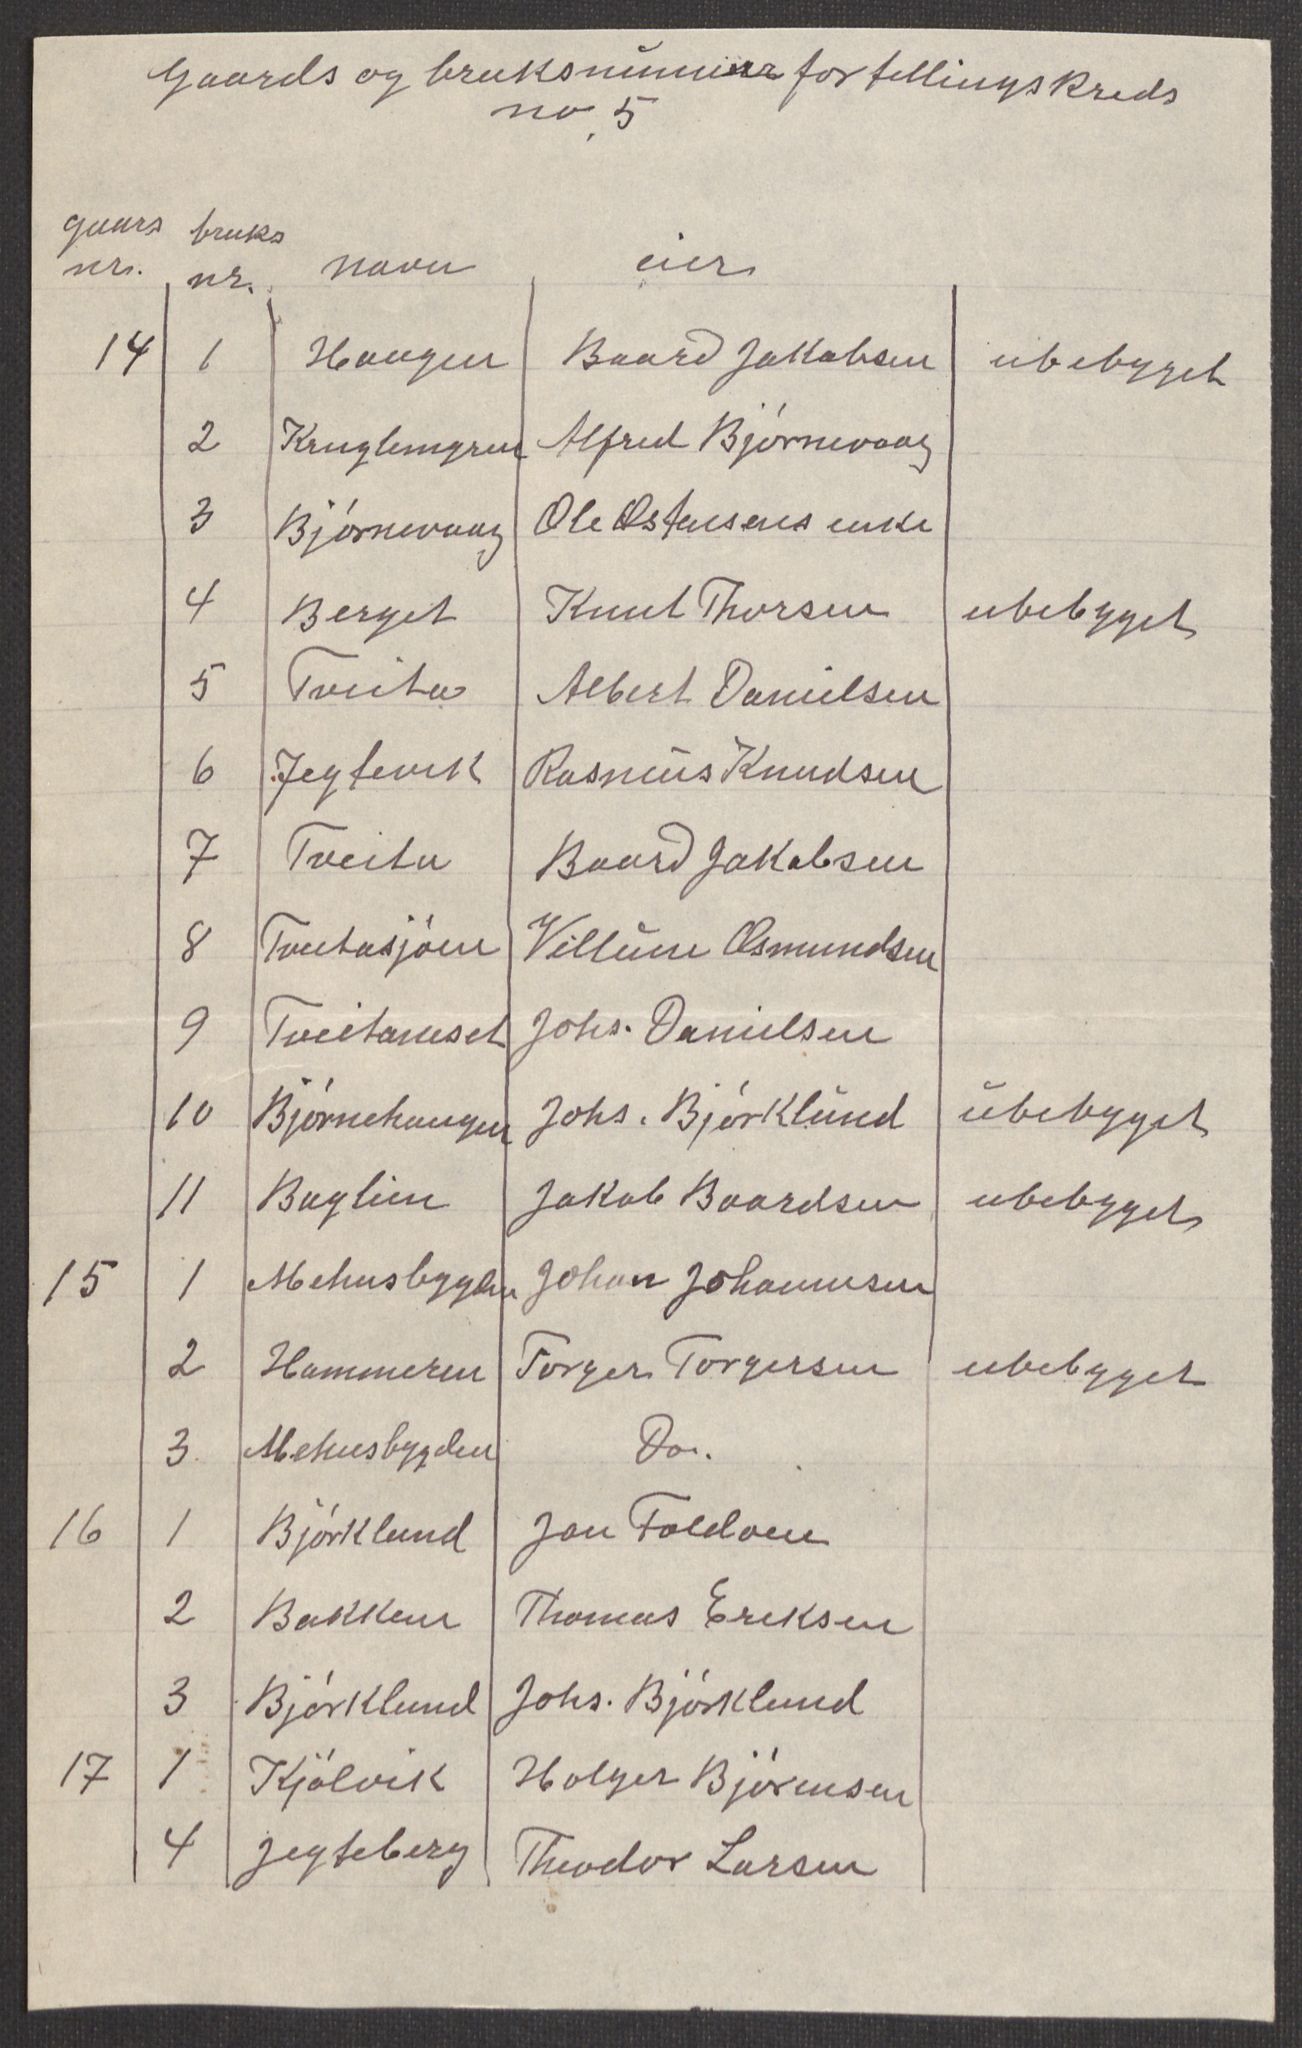 Gaards og bruksnummer for tellingskreds
no. 5
gaars bruks
nr. nr. navn eier
14 1 Haugen Baard Jakobsen ubebygget
2 Kruglemyren Alfred Bjørnevaag
3 Bjørnevaag Ole Østensens enke
4 Berget Knut Thorsen ubebygget
5 Tveita Albert Danielsen
6 Jegtevik Rasmus Knudsen
7 Tveita Baard Jakobsen
8 Tveitasjøen Villum Osmundsen
9 Tveitaneset Johs. Danielsen
10 Bjørnehaugen Johs. Bjørklund ubebygget
11 Baglien Jakob Baardsen ubebygget
15 1 Mehusbygden Johan Johannesen
2 Hammeren Torger Torgersen ubebygget
3 Mehusbygden Do.
16 1 Bjørklund Jon Foldøen
2 Bakken Thomas Eriksen
3 Bjørklund Johs. Bjørklund
17 1 Kjølvik Holger Bjørensen
4 Jegteberg Theodor Larsen